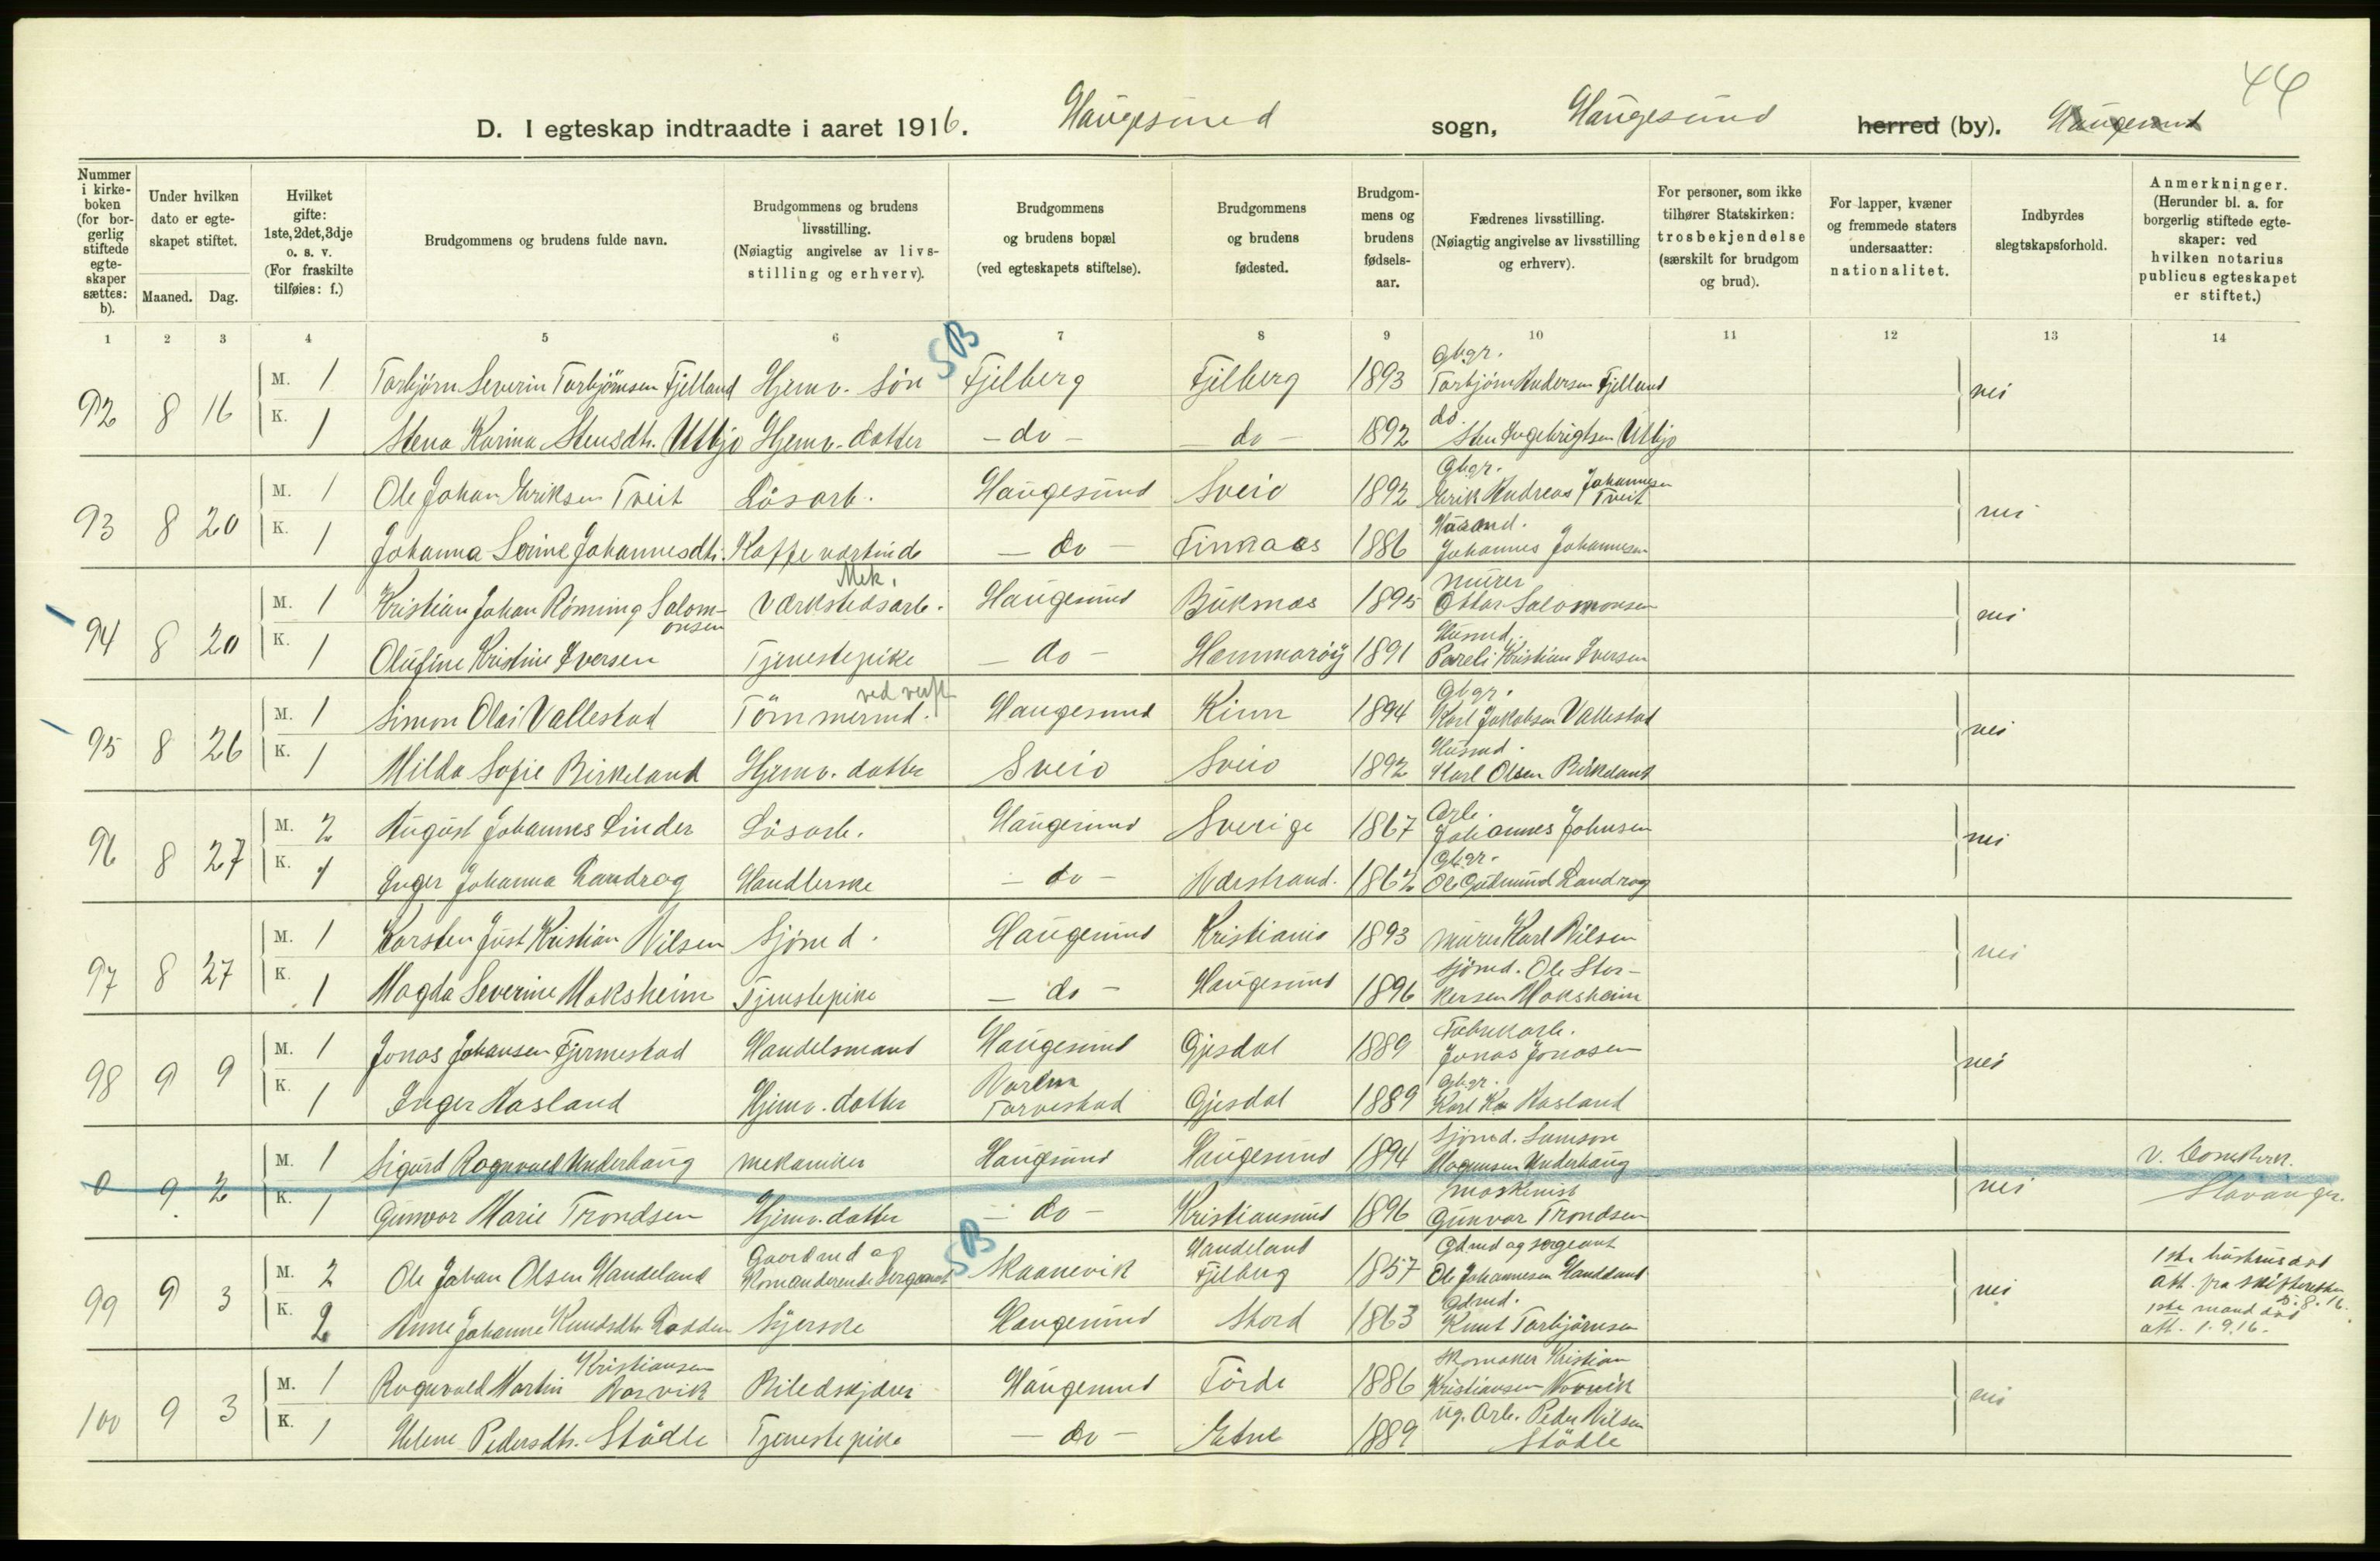 44
D. I egteskap indtraadte i aaret 1916. Haugesund sogn, Haugesund herred (by). Haugesund
Nummer i kirkeboken (for borgerlig stiftede egteskaper sættes: b).
Under hvilken dato er egteskapet stiftet.
Maaned. Dag.
Hvilket gifte: 1ste, 2det, 3dje o. s. v. (For fraskilte tilføies: f.)
Brudgommens og brudens fulde navn.
Brudgommens og brudens livsstilling. (Nøiagtig angivelse av livsstilling og erhverv).
Brudgommens og brudens bopæl (ved egteskapets stiftelse).
Brudgommens og brudens fødested.
Brudgommens og brudens fødselsaar.
Fædrenes livsstilling. (Nøiagtig angivelse av livsstilling og erhverv).
For personer, som ikke tilhører Statskirken: trosbekjendelse (særskilt for brudgom og brud).
For lapper, kvæner og fremmede staters undersaatter: nationalitet.
Indbyrdes slegtskapsforhold.
Anmerkninger. (Herunder bl. a. for borgerlig stiftede egteskaper: ved hvilken notarius publicus egteskapet er stiftet.)
1 2 3 4 5 6 7 8 9 10 11 12 13 14
SB
92 8 16 M. 1 Torbjørn Severin Torbjørnsen Fjelland Hjemv. søn Fjelberg Fjelberg 1893 Gbgr. Torbjørn Andersen Fjelland nei
K. 1 Stena Karina Stensdtr. Utbjo Hjemv. datter - do - - do - 1892 do. Sten Ingebrigtsen Utbjo
93 8 20 M. 1 Ole Johan Eriksen Tveit Løsarb. Haugesund Sveio 1892 Gbgr. Erik Andreas Johannesen Tveit nei
K. 1 Johanna Serine Johannesdtr. Kaffeværtinde - do - Finnaas 1886 Johannes Johannesen
94 8 20 M. 1 Kristian Johan Rönning Salomonsen Mek. Værkstedsarb. Haugesund Buksnes 1895 Murer Ottar Salomonsen nei
K. 1 Olufine Kristine Iversen Tjenestepike - do - Hammarøy 1891 Husmd. Pareli Kristian Iversen
95 8 26 M. 1 Simon Olai Vallestad Tömmermd. ved verft Haugesund Kinn 1894 Gbgr. Karl Jakobsen Vallestad nei
K. 1 Milda Sofie Birkeland Hjemv. datter Sveio Sveio 1892 Husmd. Karl Olsen Birkeland
96 8 27 M. 2 August Johannes Linder Løsarb. Haugesund Sverige 1867 Arb. Johannes Johnsen nei
K. 1 Inger Johanna Landrag Handlerske - do - Nærstrand. 1862 Gbgr. Ole Gudmund Landrag
97 8 27 M. 1 Karsten Just Kristian Nilsen Sjömd. Haugesund Kristiania 1893 Murer Karl Nilsen nei
K. 1 Magda Severine Moksheim Tjenestepike - do - Haugesund 1896 Sjömd. Ole Storkersen Moksheim
98 9 9 M. 1 Jonas Johansen Fjermestad Handelsmand Haugesund Gjesdal 1889 Fabrikarb. Jonas Jonasen nei
K. 1 Inger Hasland Hjemv. datter Norem Torvestad Gjesdal 1889 Gbgr. Karl Hasland
0 9 2 M. 1 Sigurd Ragnvald Underhaug Mekaniker Haugesund Haugesund 1894 Sjömd. Samson Magnusen Underhaug nei v. Domkirk. Stavanger.
K. 1 Gunvor Marie Trondsen Hjemv. datter - do - Kristiansund 1896 Maskinist Gunvar Trondsen
SB
99 9 3 M. 2 Ole Johan Olsen Handeland Gaardmd og Komanderende sergeant Skaanevik Handeland Fjelberg 1857 Gdmd og sergeant Ole Johannesen Handeland nei 1ste hustru död att. fra skifteretten 5.8.16.
K. 2 Anne Johanne Knudsdtr. Lodden Syerske Haugesund Stord 1863 Gdmd. Knut Torbjörnsen 1ste mand död att. 1.9.16.
100 9 3 M. 1 Ragnvald Martin Kristiansen Norvik Biledskjærer Haugesund Förde 1886 Skomaker Kristian Kristiansen Norvik nei
K. 1 Helene Pedersdtr. Stödle Tjenestepike - do - Etne 1889 Ug. Arb. Peder Nilsen Stödle